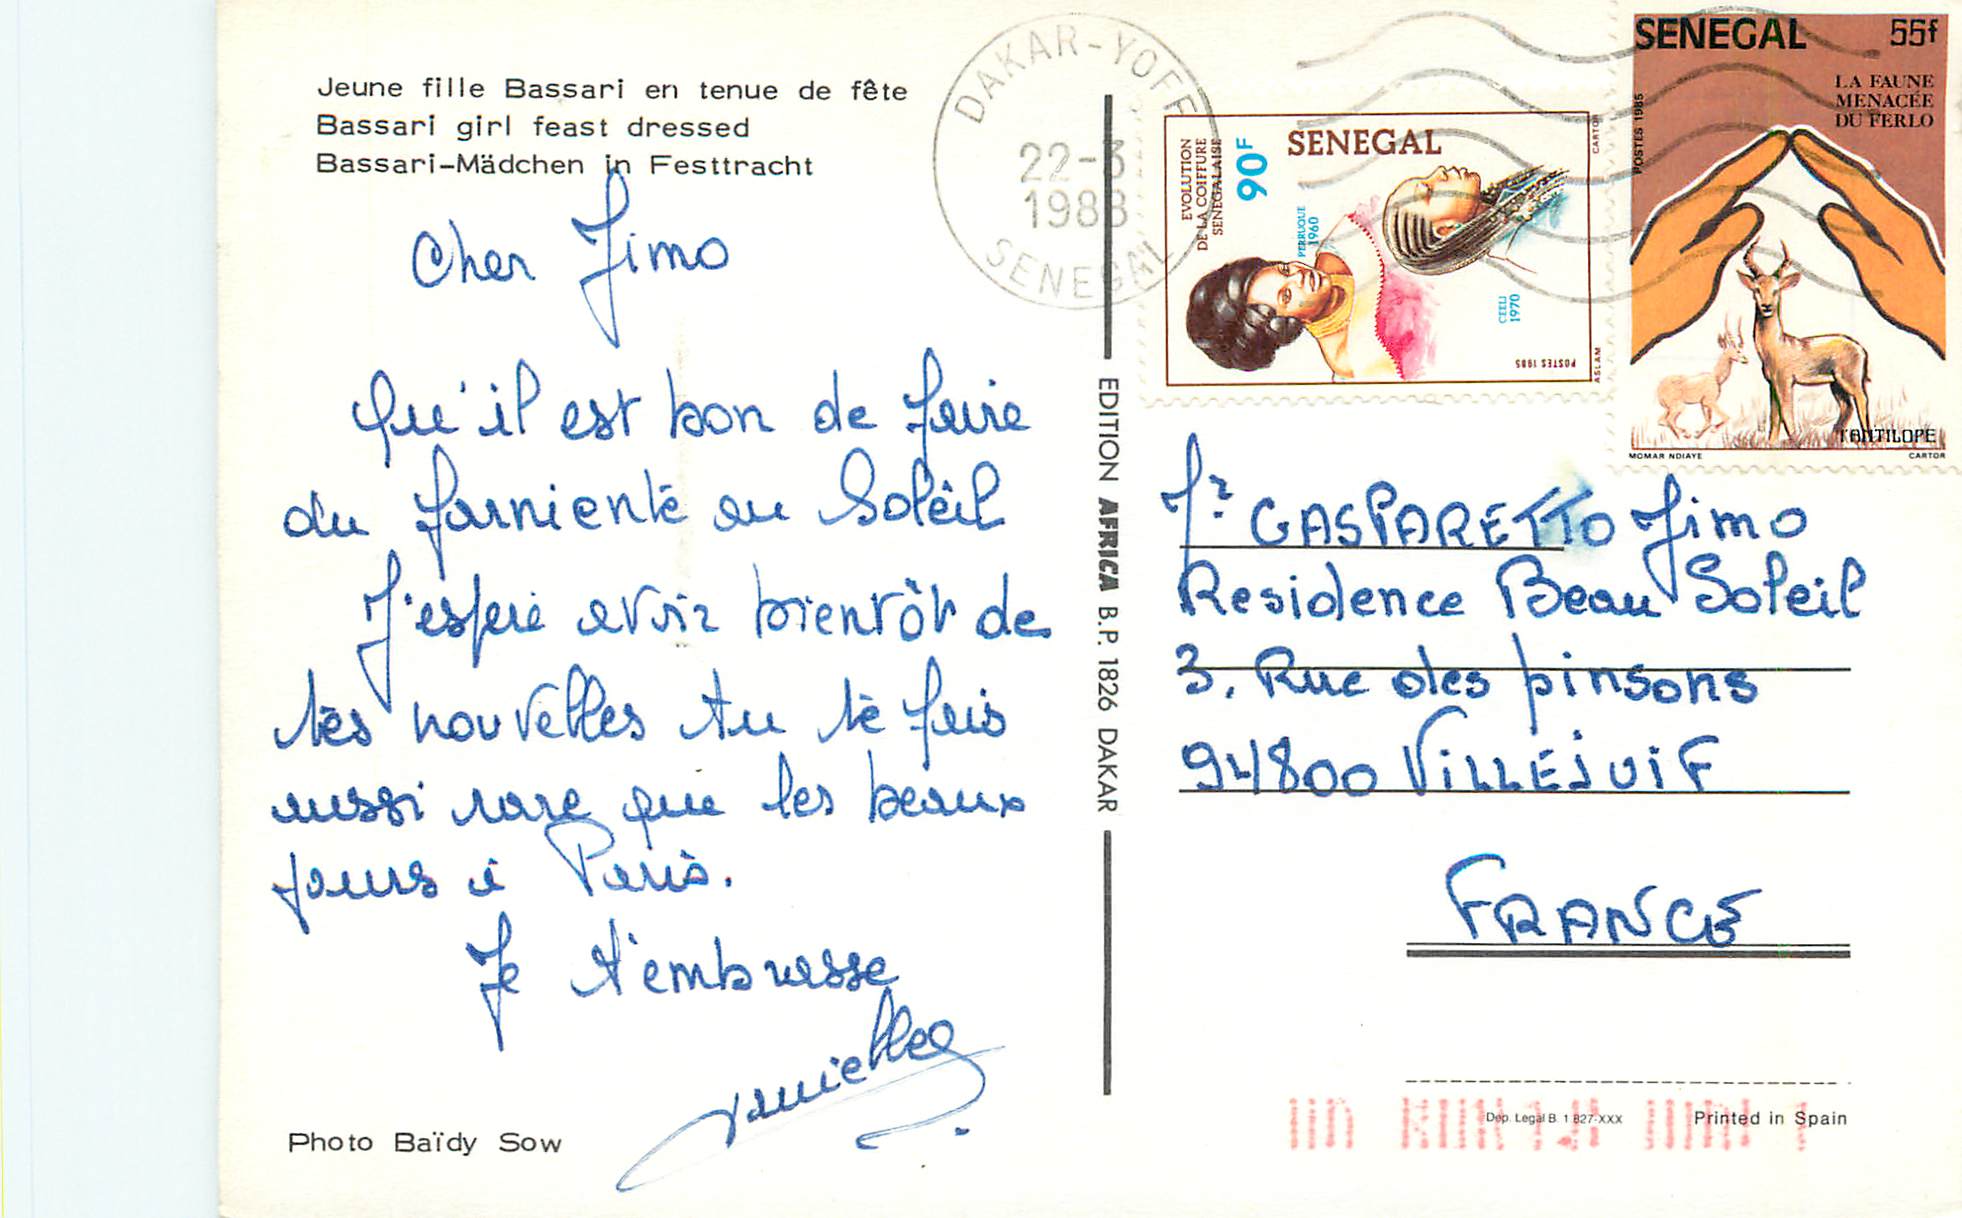 Jeune fille Bassari en tenue de fête
Bassari girl feast dressed
Bassari-Mädchen in Festtracht
Cher Jimo
Qu'il est bon de faire
du farniente au Soleil
J'espere avoir bientôt de
tes nouvelles tu te fais
aussi rare que les beaux
jours à Paris.
Je t'embrasse
Photo Baïdy Sow
EDITION AFRICA B.P. 1826 DAKAR
DAKAR-YOFF
1988
SENEGAL
SENEGAL
90F
EVOLUTION
DE LA COIFFURE
SENEGALAISE
PERRUQUE
1960
CEELI
1970
POSTES 1985
ASLAM
CARTOR
SENEGAL 55f
LA FAUNE
MENACÉE
DU FERLO
POSTES 1985
L'ANTILOPE
MOMAR NDIAYE CARTOR
GASPARETTO Jimo
Residence Beau Soleil
3, Rue des pinsons
94800 VILLEJUIF
FRANCE
Dep. Legal B. 1 827-XXX
Printed in Spain